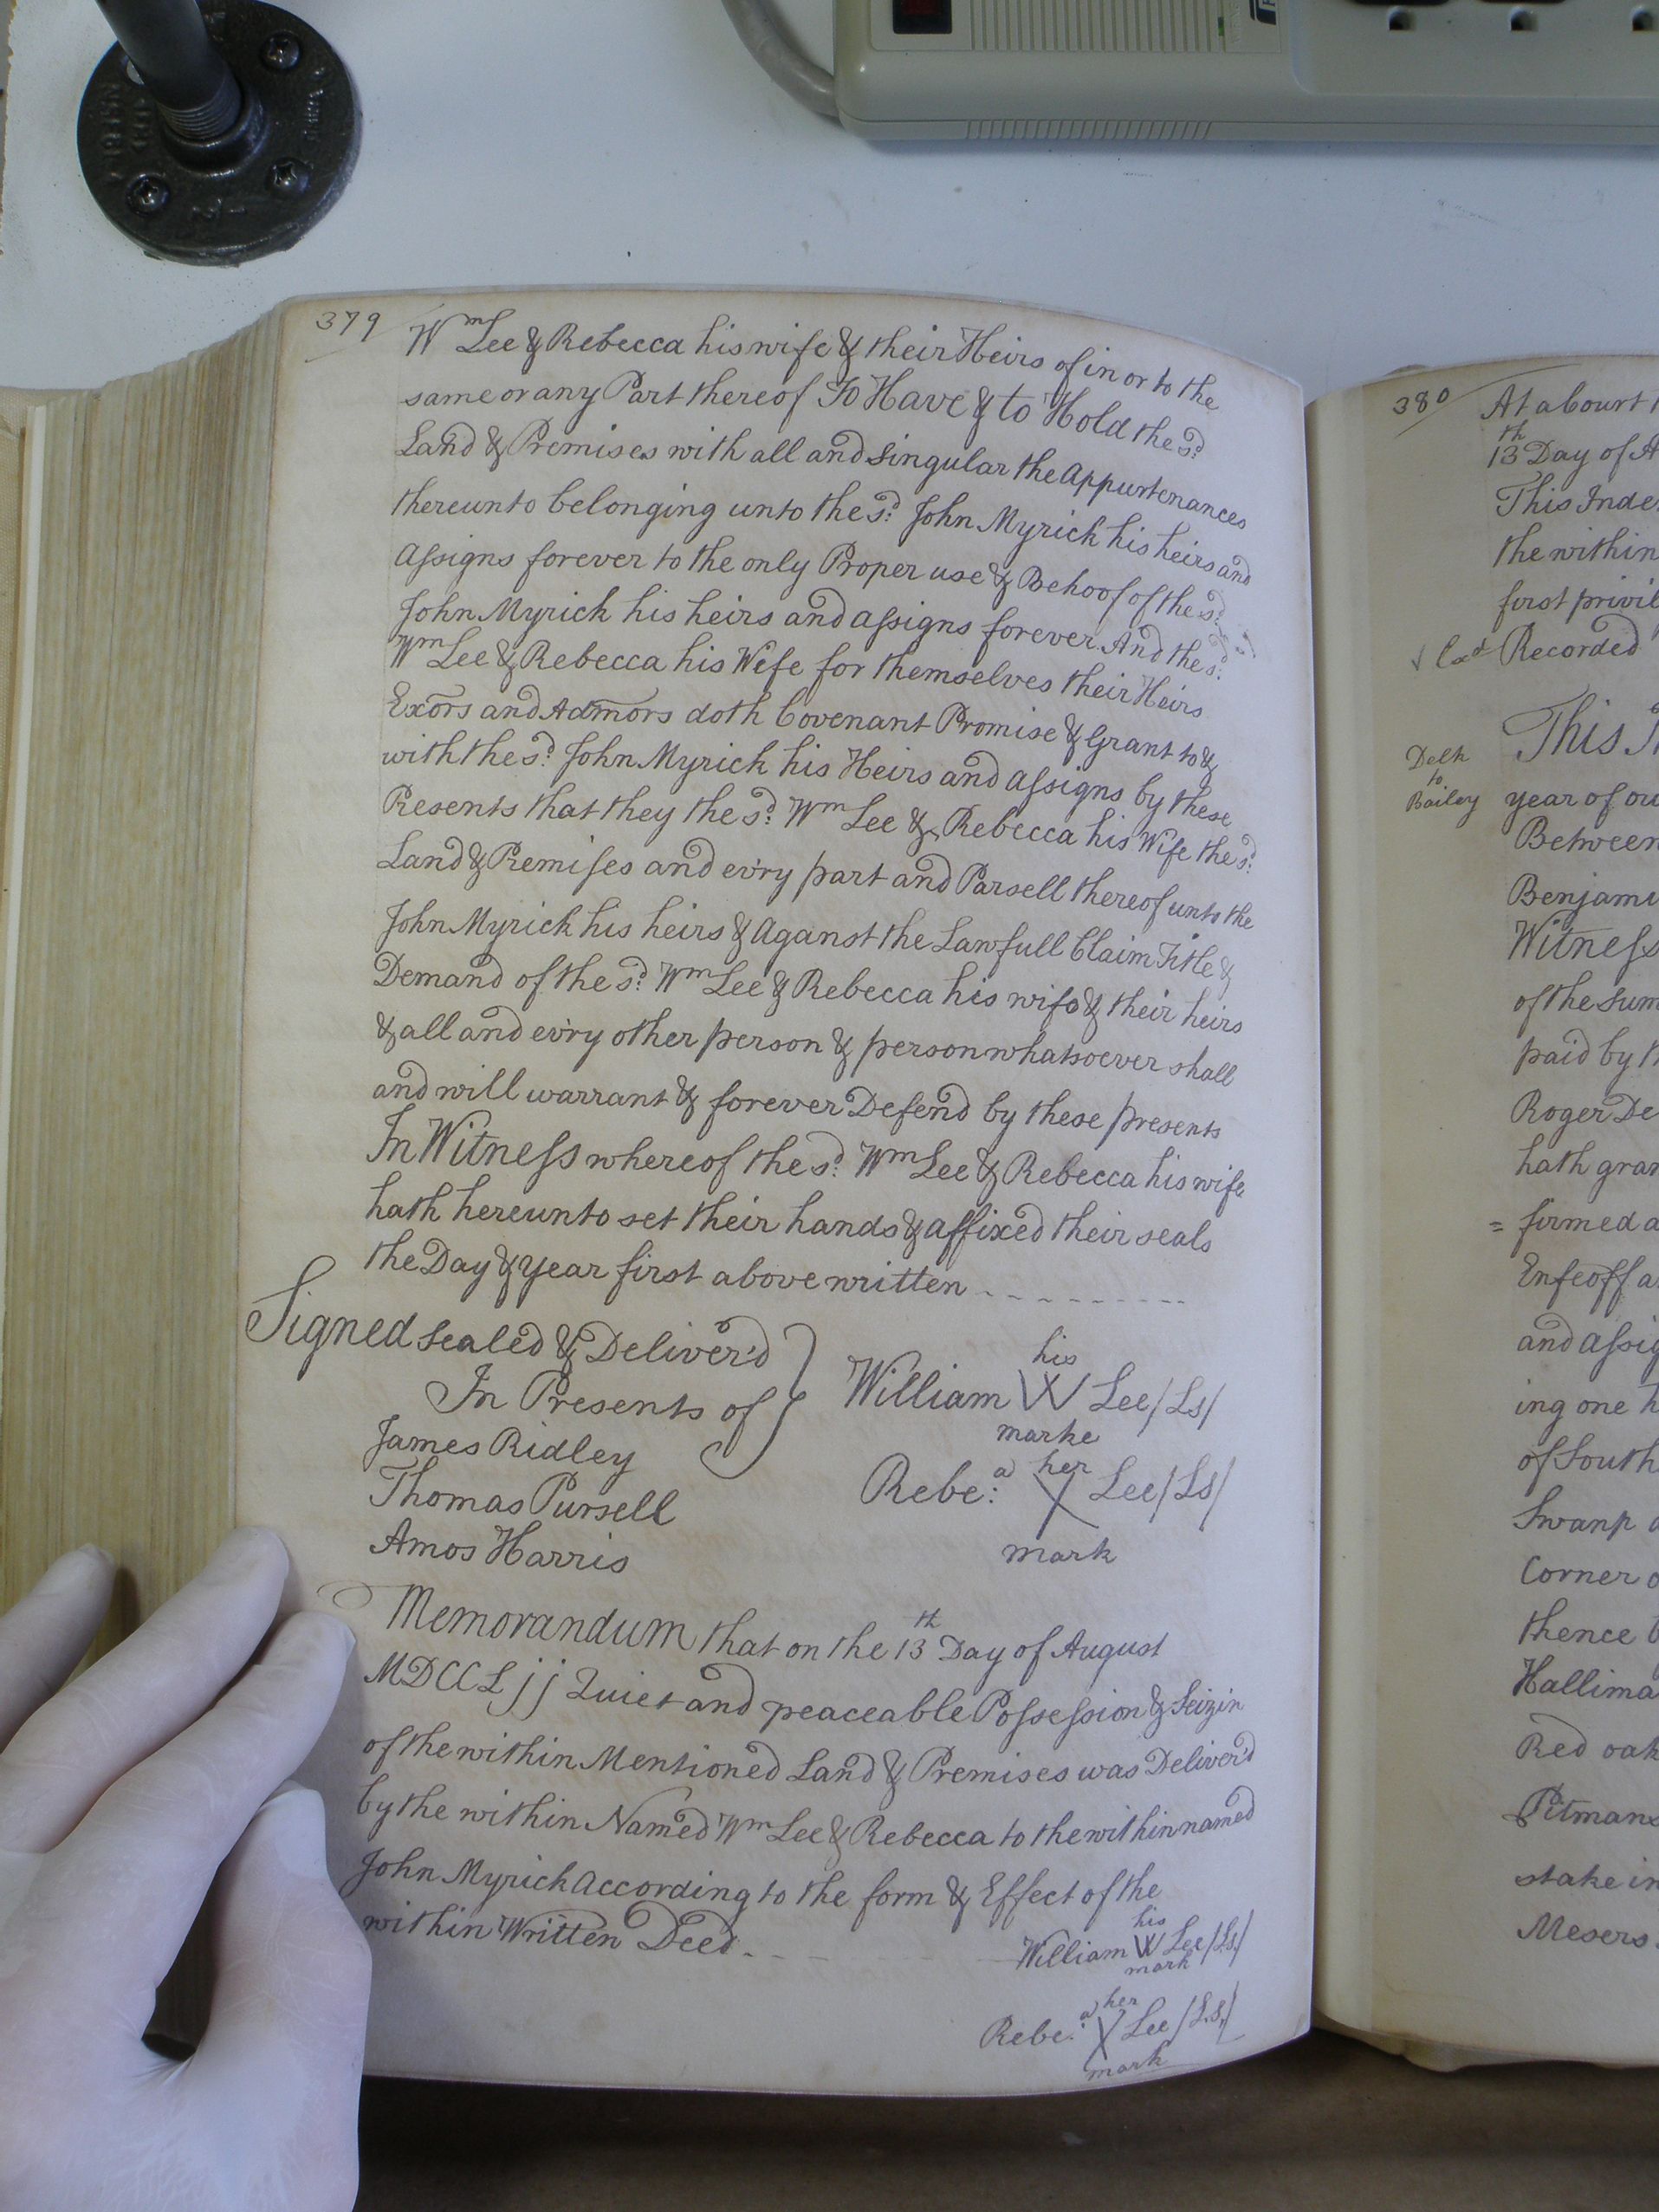 379
Wm Lee & Rebecca his wife & their Heirs of in or to the
same or any Part thereof To Have & to Hold the sd.
Land & Premises with all and singular the Appurtenances
thereunto belonging unto the sd. John Myrick his heirs and
Assigns forever to the only Proper use & Behoof of the sd.
John Myrick his heirs and assigns forever. And the sd.
Wm Lee & Rebecca his Wife for themselves their Heirs
Exors and Admors doth Covenant Promise & Grant to &
with the sd. John Myrick his Heirs and assigns by these
Presents that they the sd. Wm Lee & Rebecca his Wife the sd.
Land & Premises and ev'ry part and Parsell thereof unto the
John Myrick his heirs & Aganst the Lawfull Claim Title &
Demand of the sd. Wm Lee & Rebecca his wife & their heirs
& all and ev'ry other person & person whatsoever shall
and will warrant & forever Defend by these presents
In Witness whereof the sd. Wm Lee & Rebecca his wife
hath hereunto set their hands & affixed their seals
the Day & Year first above written
Signed sealed & Deliver'd
In Presents of
James Ridley
Thomas Pursell
Amos Harris
his
William W Lee /Ls/
marke
her
Rebe:a X Lee /Ls/
mark
Memorandum that on the 13th Day of August
MDCCLjj Quiet and peaceable Possession & Seizin
of the within Mentioned Land & Premises was Deliver'd
by the within Named Wm Lee & Rebecca to the within named
John Myrick According to the form & Effect of the
within Written Deed
his
William W Lee /Ls/
mark
her
Rebe:a X Lee /L.S./
mark
380
At a Court
13th Day of A
This Inde
the within
first privil
Recorded
Delk
to
Bailey
This
year of ou
Between
Benjami
Witness
of the Sum
paid by
Roger De
hath gran
= firmed a
Enfeoff a
and assig
ing one h
of South
Swanp
Corner o
thence
Hallima
Red oak
Pitmans
stake in
Mesers